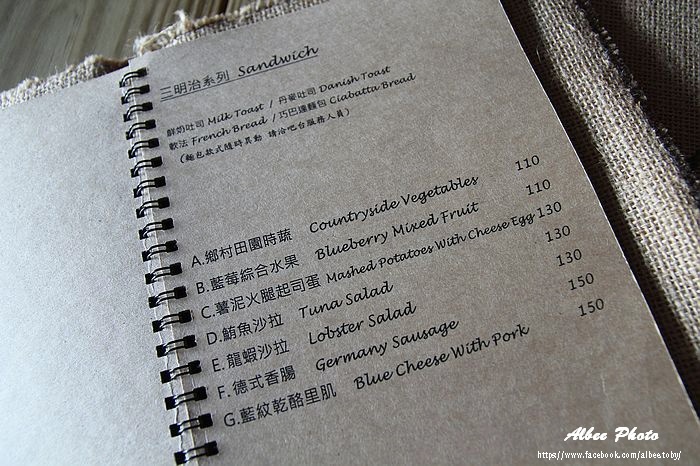 三明治系列 Sandwich
鮮奶吐司 Milk Toast / 丹麥吐司 Danish Toast
軟法 French Bread / 巧巴達麵包 Ciabatta Bread
(麵包款式隨時異動 請洽吧台服務人員)
A.鄉村田園時蔬 Countryside Vegetables 110
B.藍莓綜合水果 Blueberry Mixed Fruit 110
C.薯泥火腿起司蛋 Mashed Potatoes With Cheese Egg 130
D.鮪魚沙拉 Tuna Salad 130
E.龍蝦沙拉 Lobster Salad 130
F.德式香腸 Germany Sausage 150
G.藍紋乾酪里肌 Blue Cheese With Pork 150
Albee Photo
https://www.facebook.com/albee.toby/